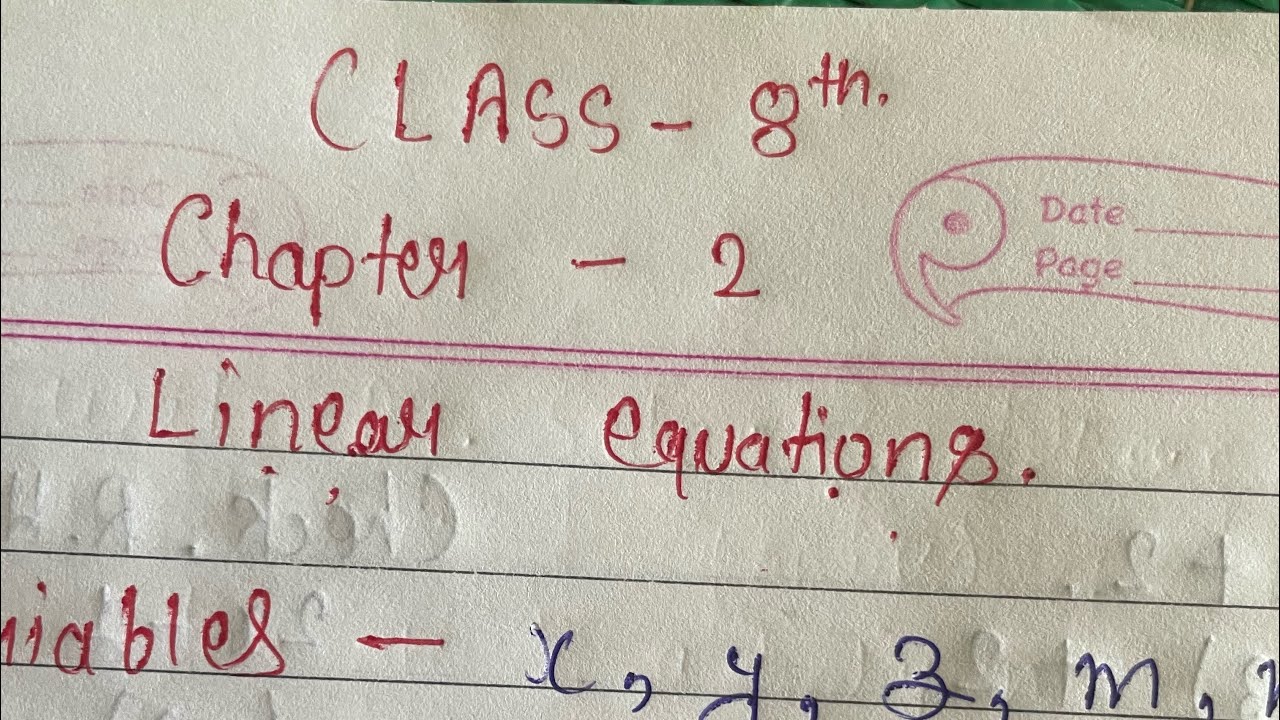 CLASS - 8th.
Chapter - 2
Date
Page
Linear equations.
riables - x, y, z, m,